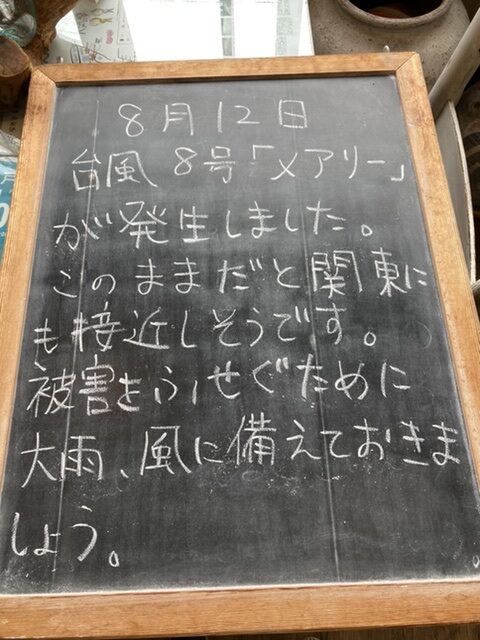 8月12日
台風 8号「メアリー」
が発生しました。
このままだと関東に
も接近しそうです。
被害をふせぐために
大雨、風に備えておきま
しょう。